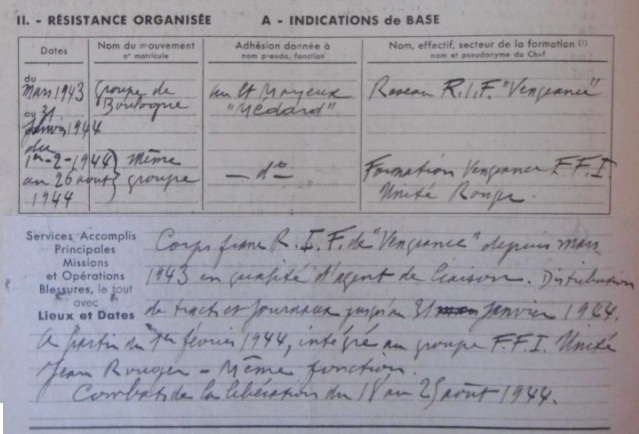 II. - RÉSISTANCE ORGANISÉE A - INDICATIONS de BASE
Dates
Nom du mouvement
n° matricule
Adhésion donnée à
nom pseudo, fonction
Nom, effectif, secteur de la formation (1)
nom et pseudonyme du Chef
du
Mars 1943 Groupe de au Lt Mayeux Reseau R.I.F "Vengeance"
au 31 Boulogne "Médard"
Janvier 1944
du
1er-2-1944 Même — do — Formation Vengeance F.F.I.
au 26 août groupe Unité Rouge.
1944
Services Accomplis
Principales
Missions
et Opérations
Blessures, le tout
avec
Lieux et Dates
Corps franc R.I.F. de "Vengeance" depuis mars
1943 en qualité d'agent de liaison. Distribution
de tracts et journaux jusqu'au 31 Janvier 1944.
A partir du 1er février 1944, intégré au groupe F.F.I. Unité
Jean Rouger - Même fonction.
Combats de la libération du 18 au 25 août 1944.